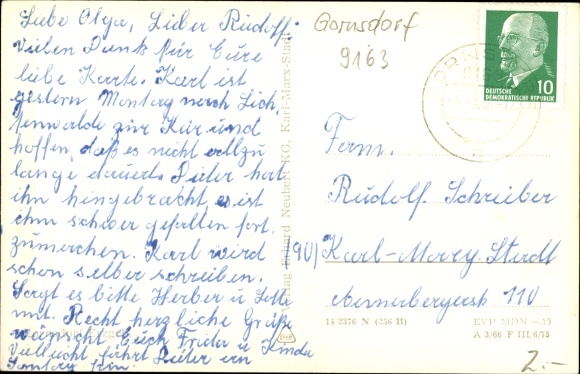 Liebe Olga, Lieber Rudolf.
Vielen Dank für Eure
liebe Karte. Karl ist
gestern Montag nach Lich,
tenwalde zur Kur und
hoffen, daß es nicht allzu
lange dauert. Dieter hat
ihn hingebracht, es ist
ihm schwer gefallen fort,
zumachen. Karl wird
schon selber schreiben.
Sagt es bitte Herber u Lotte
mit. Recht herzliche Grüße
wünscht Euch Frieda u Kinder
Vielleicht fährt Dieter am
Sonntag hin.
Gornsdorf
9163
10
DEUTSCHE
DEMOKRATISCHE REPUBLIK
Erhard Neubert KG, Karl-Marx-Stadt
Fam.
Rudolf Schreiber
(90) Karl-Marx-Stadt
110
14 2376 N (256 B)
EVP MDN
A 3/66 F III/6/75
2.-